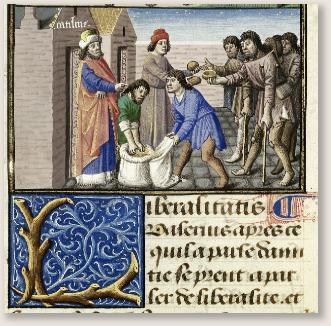 Liberalitatis
Valerius apres ce
quil a parle damι
tie se prent a par
ler de liberalite. et